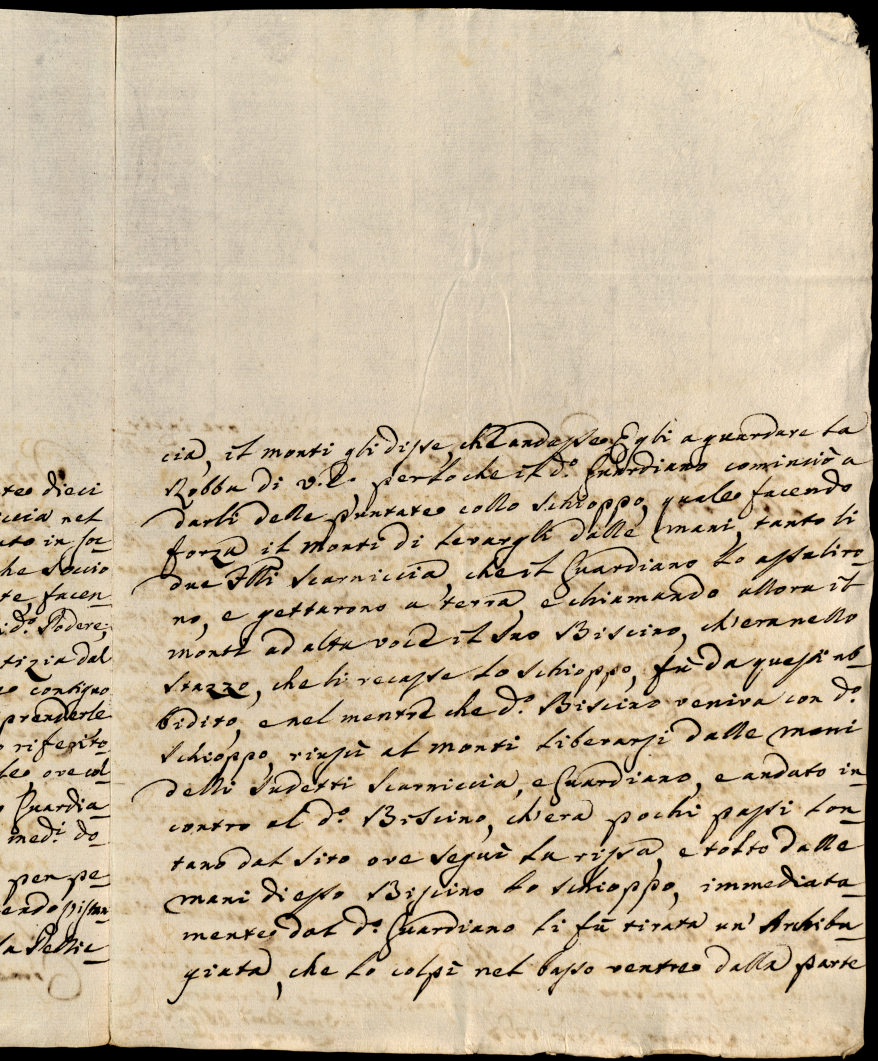 teo dieci
ccia nel
ato in soc=
he Socio
te facen=
i d.º Podere,
tizia dal
eo contiguo
prenderle
o riferito=
leo ore col=
o Guardia=
med.i do=
pen pe=
endo pistan
la Pellic=
cia, il Monti gli disse, che andasse Egli a guardare la
Robba di V.E. perloche il d.º Guardiano cominciò a
darli delle puntateo collo Schioppo, qualeo facendo
forza il Monti di levargli dalle mani, tanto li
due Flli Scarniccia, che il Guardiano lo assaliro=
no, e gettarono a terra, e chiamando allora il
Monti ad alta voce il suo Biscino, ch'era nello
Stazzo, che li recasse lo schioppo, fù da questi ub=
bidito, e nel mentre che d.º Biscino veniva con d.º
Schioppo, riuscì al Monti liberarsi dalle mani
delli sudetti Scarniccia, e Guardiano, e andato in=
contro al d.º Biscino, ch'era pochi passi lon=
tano dal sito ove seguì la rissa, e tolto dalle
mani di esso Biscino lo Schioppo, immediata=
menteo dal d.º Guardiano li fù tirata un' Archibu=
giata, che lo colpì nel basso ventreo dalla parte